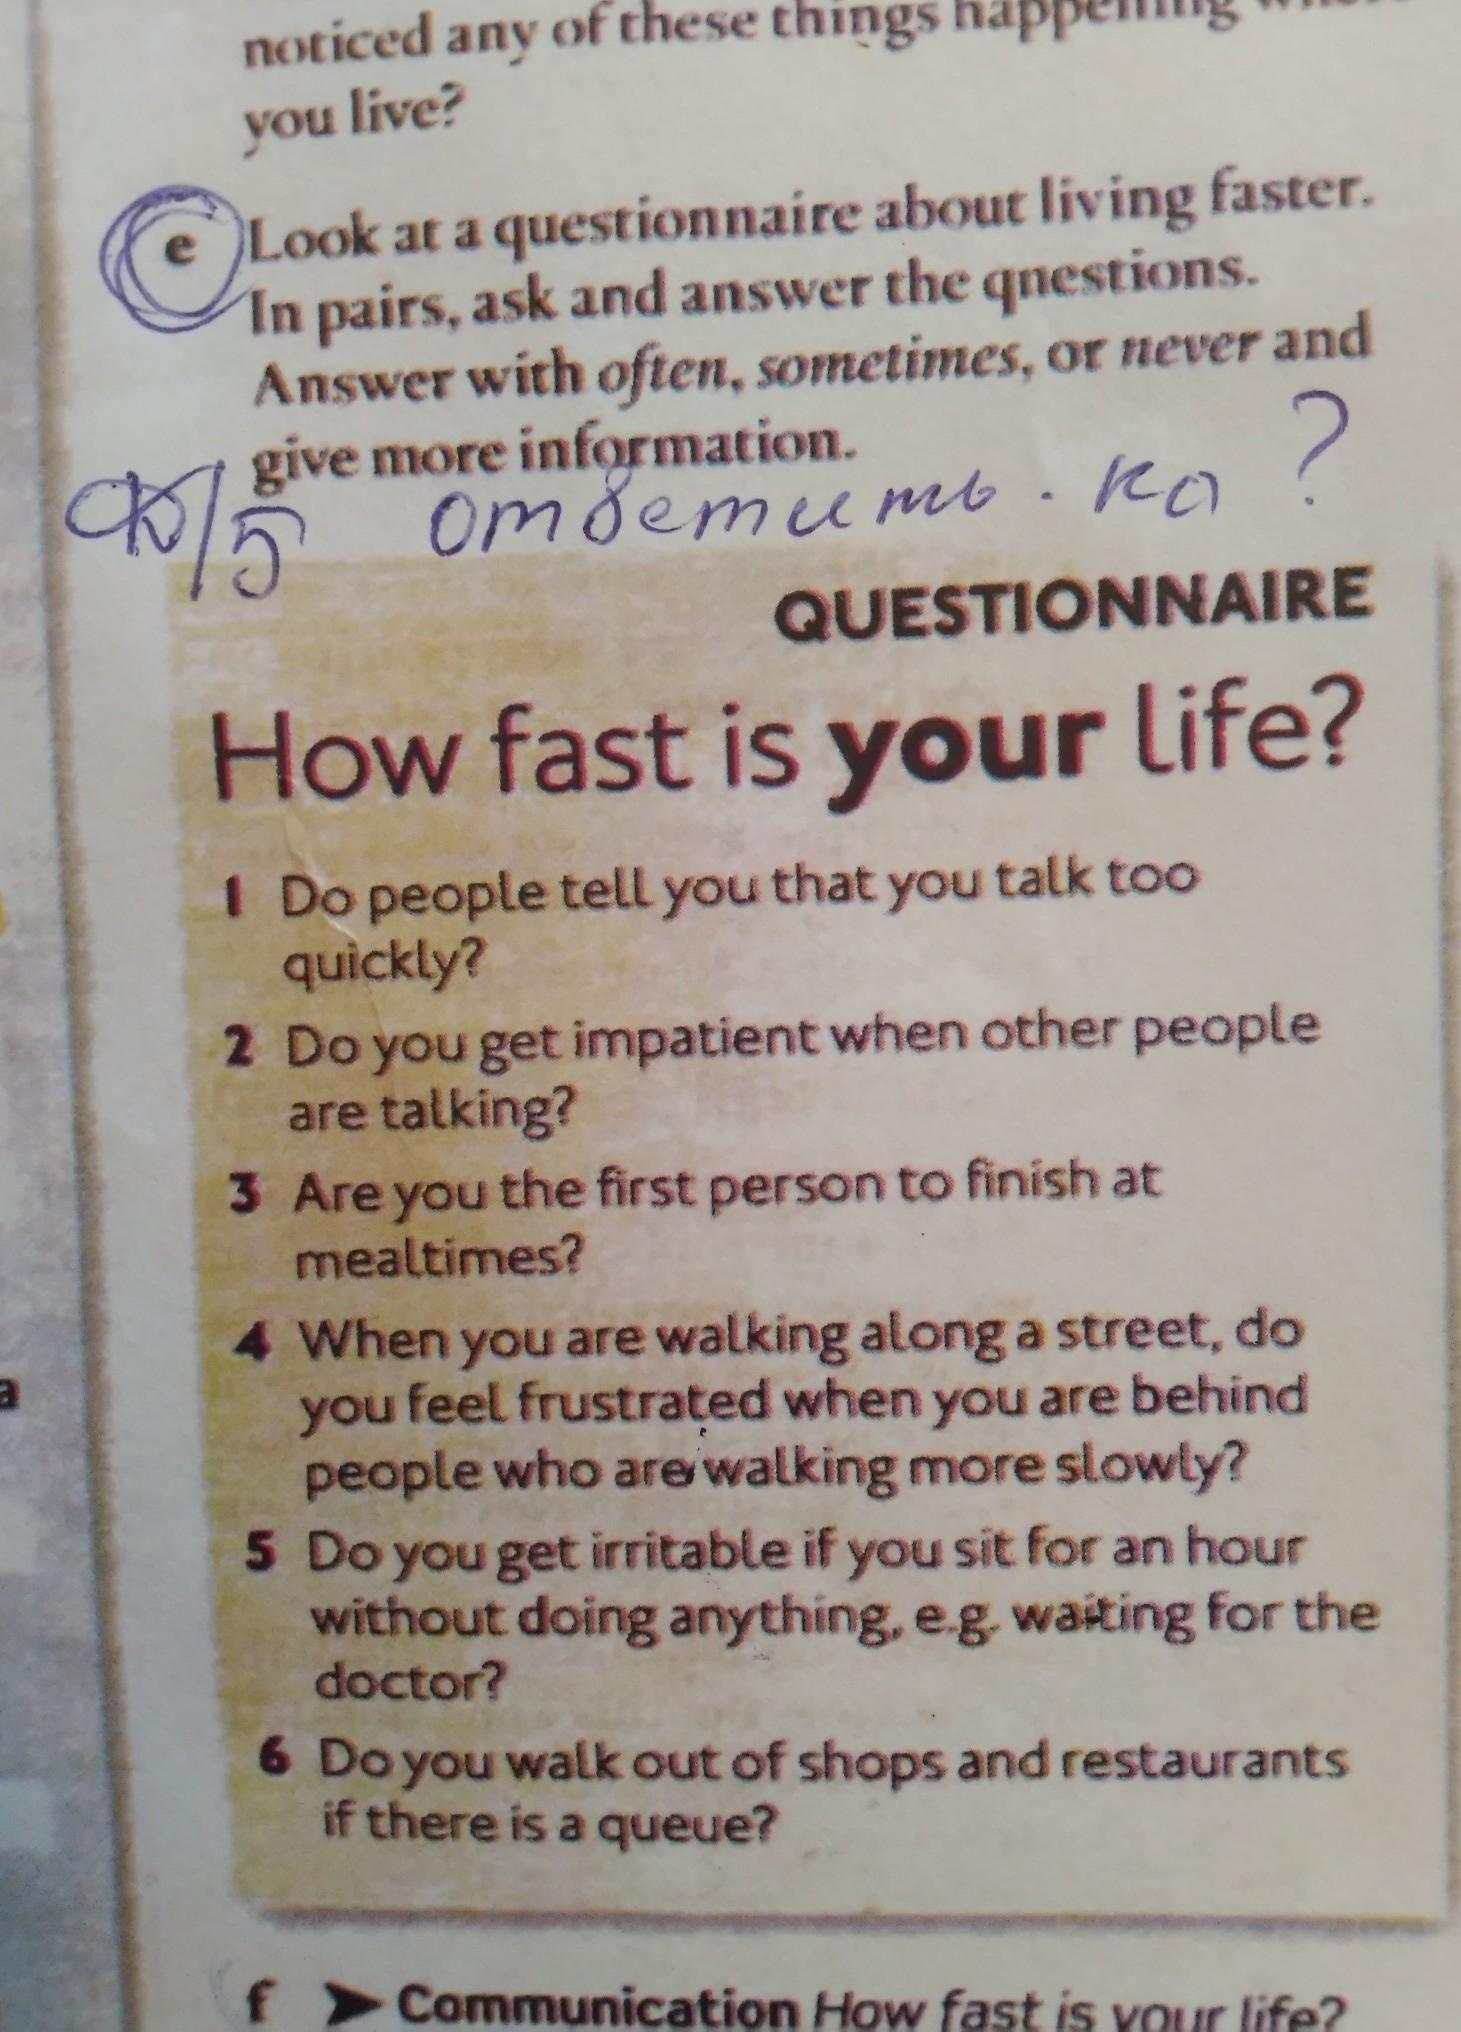 noticed any of these things happening
you live?
e Look at a questionnaire about living faster.
In pairs, ask and answer the qnestions.
Answer with often, sometimes, or never and
give more information.
ответить ка ?
QUESTIONNAIRE
How fast is your life?
1 Do people tell you that you talk too
quickly?
2 Do you get impatient when other people
are talking?
3 Are you the first person to finish at
mealtimes?
4 When you are walking along a street, do
you feel frustrated when you are behind
people who are walking more slowly?
5 Do you get irritable if you sit for an hour
without doing anything, e.g. waiting for the
doctor?
6 Do you walk out of shops and restaurants
if there is a queue?
f ➤ Communication How fast is your life?
a